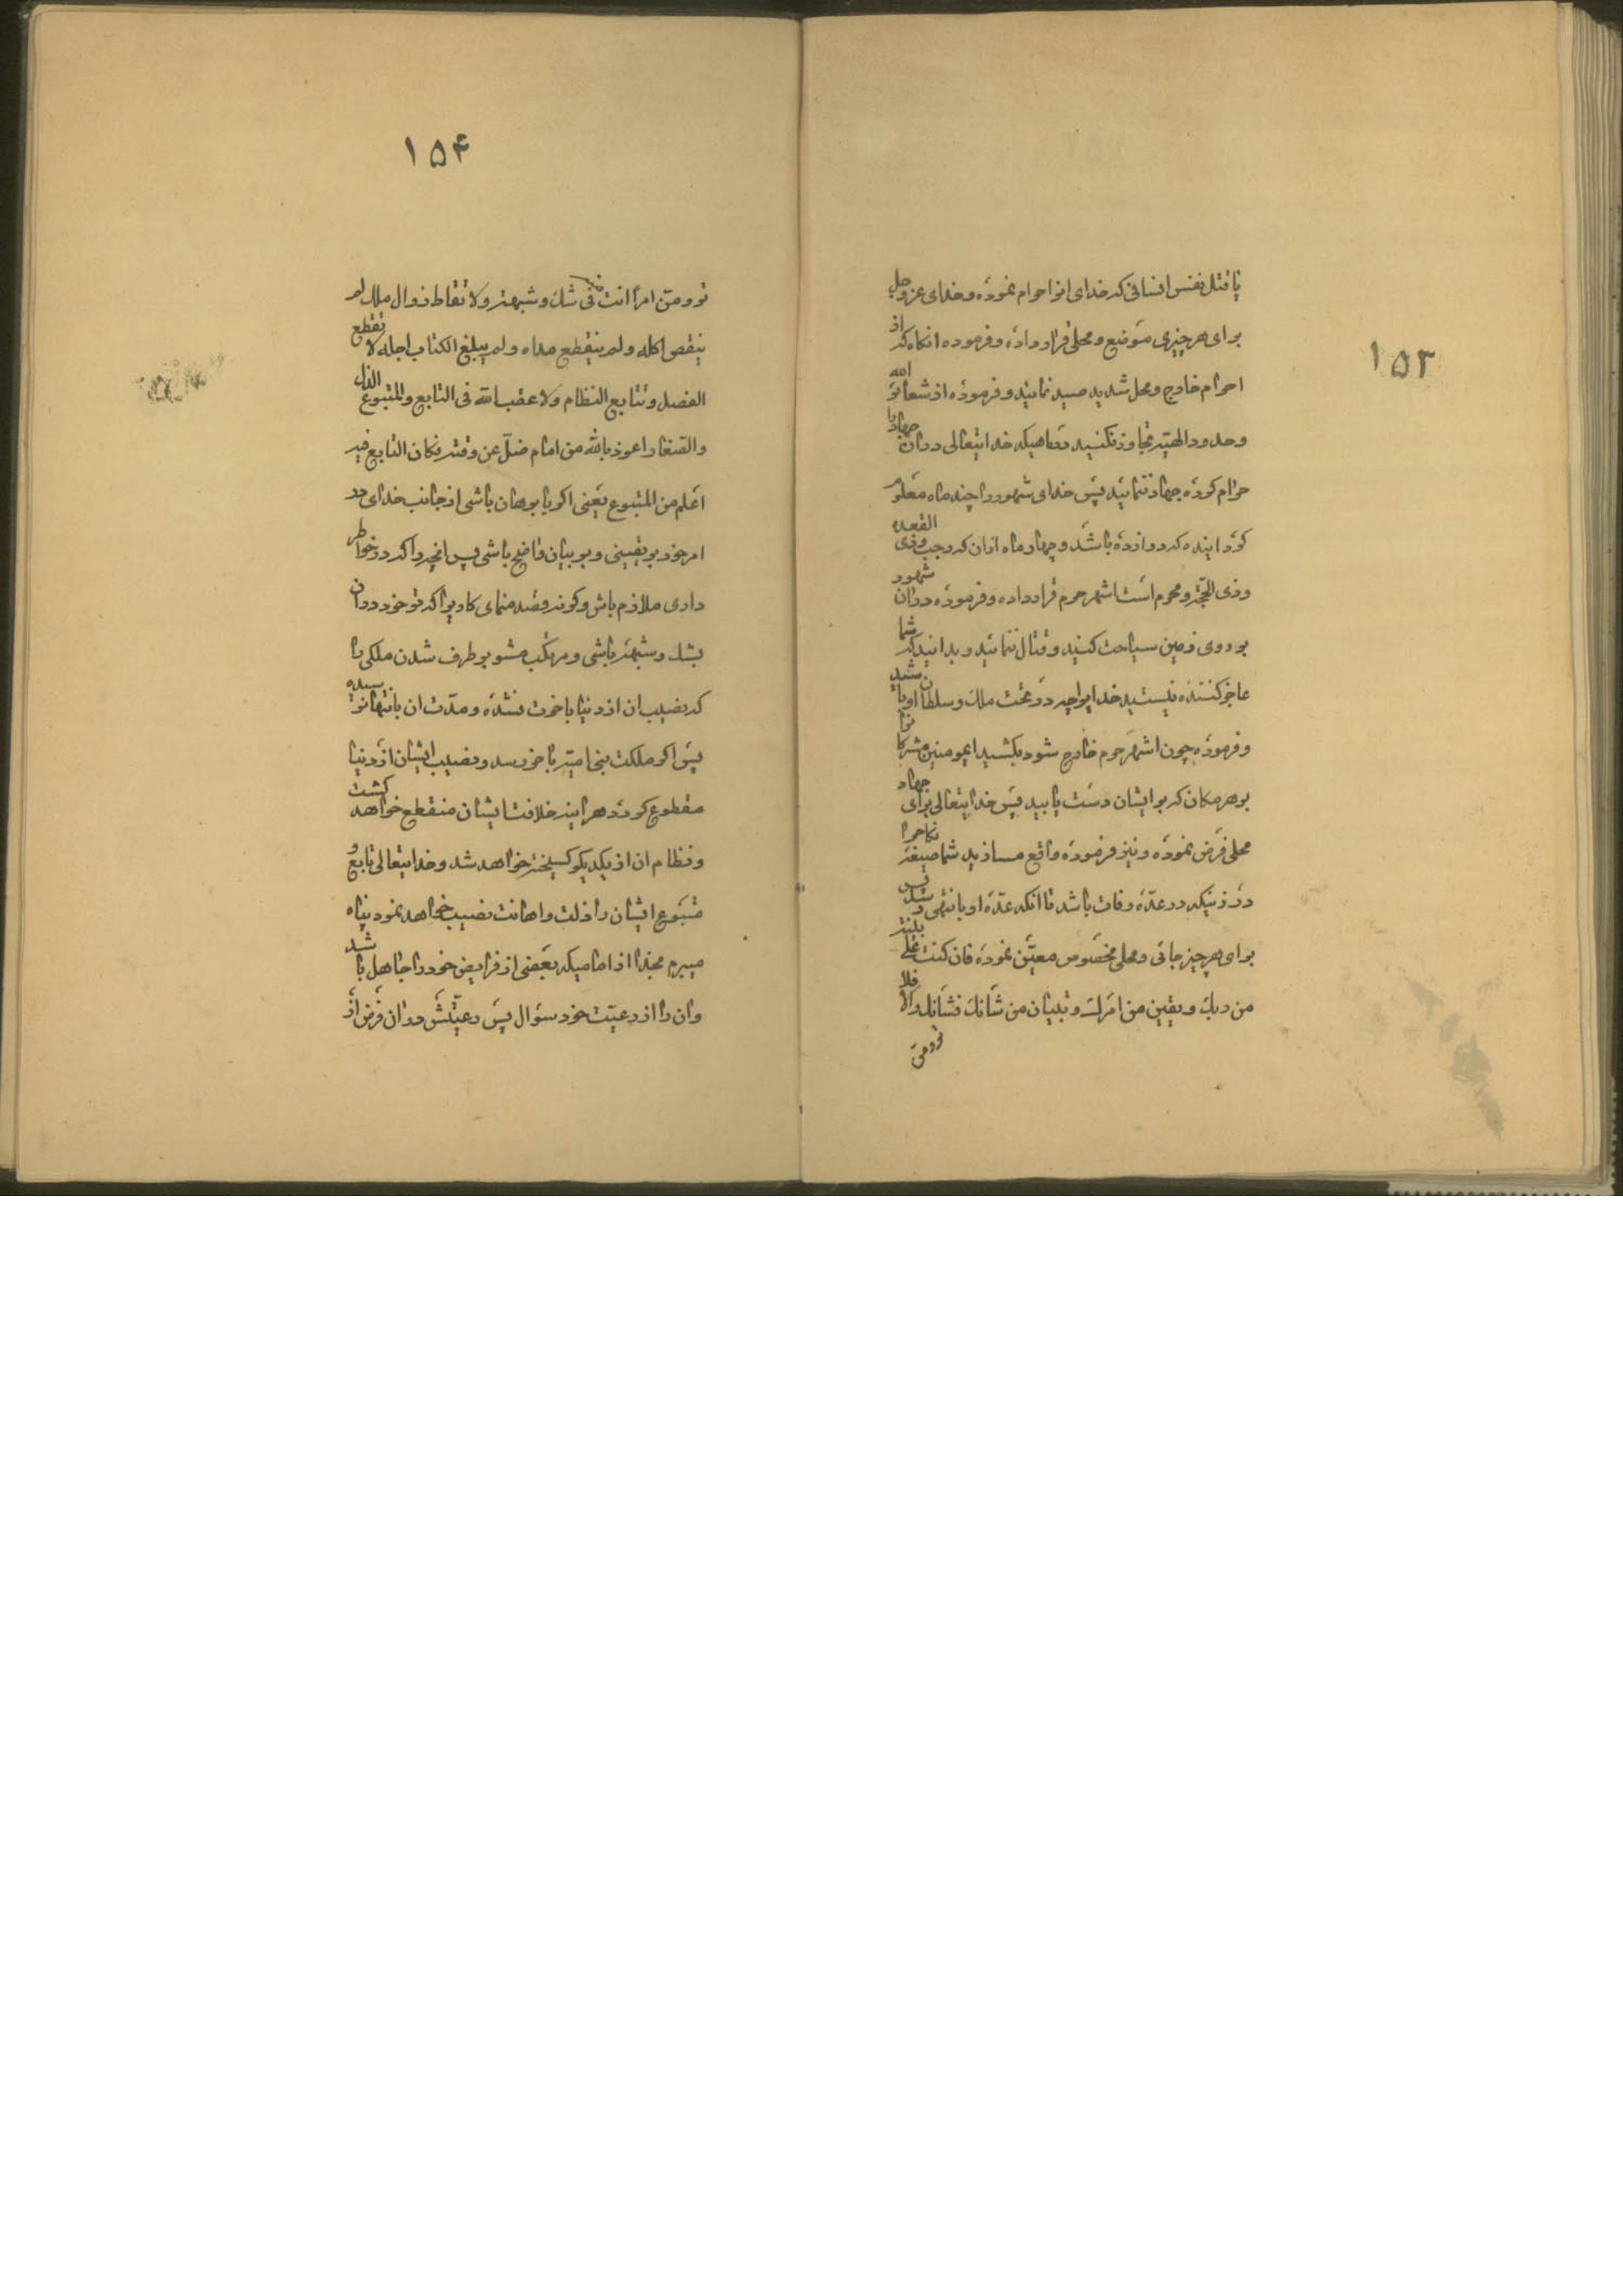 ۱۵۳
یا قتل نفس انسانی که خدای انرا حرام نموده و خدای عز وجل
برای هر چیزی موضع و محلی قرار داده و فرموده انگاه که از
احرام خارج و محل شدید صید نمائید و فرموده از شعائر الله
و حدود الهیه تجاوز نکنید و ماهیکه خدایتعالی در ان جهاد را
حرام کرده جهاد ننمائید پس خدای شهور را چند ماه معلوم
گردانیده که دوازده باشد و چهار ماه از ان که رجب و ذی القعده
و ذی الحجه و محرم است اشهر حرم قرار داده و فرموده در ان شهور
بر روی زمین سیاحت کنید و قتال ننمائید و بدانید که شما
عاجز کننده نیستید خدا را چه در تحت ملک و سلطان او میباشید
و فرموده چون اشهر حرم خارج شود بکشید ایمومنین مشرکانرا
بر هر مکان که بر ایشان دست یابید پس خدایتعالی برای جهاد
محلی فرض نموده و نیز فرموده واقع مسازید شما صیغه نکاحرا
در زنیکه در عده وفات باشد تا انکه عده او بانتهی رسد پس
برای هر چیز جائی و محلی مخصوص معین نموده فان کنت علی بینة
من ربک و یقین من امرک و تبیان من شانک فشانک والا فلا
ترومن
۱۵۴
ترومن امرا انت منه فی شک و شبهة ولا تقاط زوال ملک لم
ینقص اکله ولم ینقطع مداه ولم یبلغ الکتاب اجله لا تقطع
الفصل و تتابع النظام ولا عقب الله فی التابع والمتبوع الذل
والصغار اعوذ بالله من امام ضل عن وقته فکان التابع فیه
اعلم من المتبوع یعنی اگر با برهان باشی از جانب خدای در
امر خود بر یقینی و بر بیان واضح باشی پس انچه را که در خواطر
داری ملازم باش و گرنه قصد منمای کاریرا که تو خود در ان
بشک و شبهه باشی و مرتکب مشو بر طرف شدن ملکی را
که نصیب ان از دنیا باخرت نشده و مدت ان بانتها نرسیده
پس اگر مملکت بنی امیه باخر رسد و نصیب ایشان از دنیا
مقطوع گردد هر اینه خلافت ایشان منقطع خواهد گشت
و نظام ان از یکدیگر گسیخته خواهد شد و خدایتعالی تابع و
متبوع ایشان را ذلت و اهانت نصیب خواهد نمود پناه
میبرم بخدا از امامیکه بعضی از فرایض خود را جاهل باشد
و ان را از رعیت خود سؤال پس رعیتش در ان فرض از